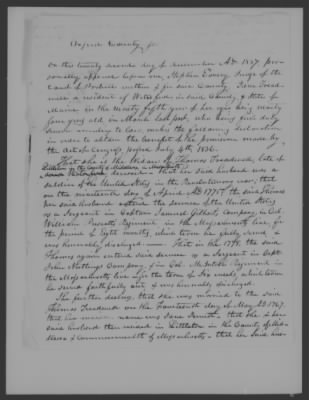 Oxford County, ss
On this twenty second day of November A.D. 1837 per-
sonally appears before me, Stephen Emery Judge of the
Court of Probate within & for said County Jane Tread-
well a resident of Waterford in said County, & State of
Maine in the Ninety fifth year of her age being ninety
four years old in March last past, who being first duly
sworn according to law, makes the following declaration
in order to obtain the benefit of the provision made by
the Act of Congress, passed July 4th, 1836.
That she is the Widow of Thomas Treadwell, late of
Littleton in the County of Middlesex in Massachusetts
deceased - that her said husband was a
soldier of the United States in the Revolutionary war; that
on the nineteenth day of April A.D. 1775 the said Thomas
her said husband entered the service of the United States
as a Sergeant in Captain Samuel Gilbert's Company in Col.
William Prescott's Regiment in the Massachusetts line for
the period of eight months, which term he fully served &
was honorably discharged. That in the 1778 the said
Thomas again entered said service as a Sergeant in Capt.
John Company & in Col. McIntosh Regiment in
the Massachusetts line for the term of six weeks which term
he served faithfully out & was honorably discharged.
She further declares, that she was married to the said
Thomas Treadwell on the Fourteenth day of May A.D. 1767.
that her maiden name was Jane - that she & her
said husband then resided in Littleton in the County of Mid-
dlesex & Commonwealth of Massachusetts - that her said hus-